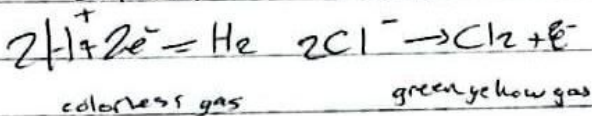 2H⁺+2e⁻=H2 2Cl⁻→Cl2+e⁻
colorless gas green yellow gas